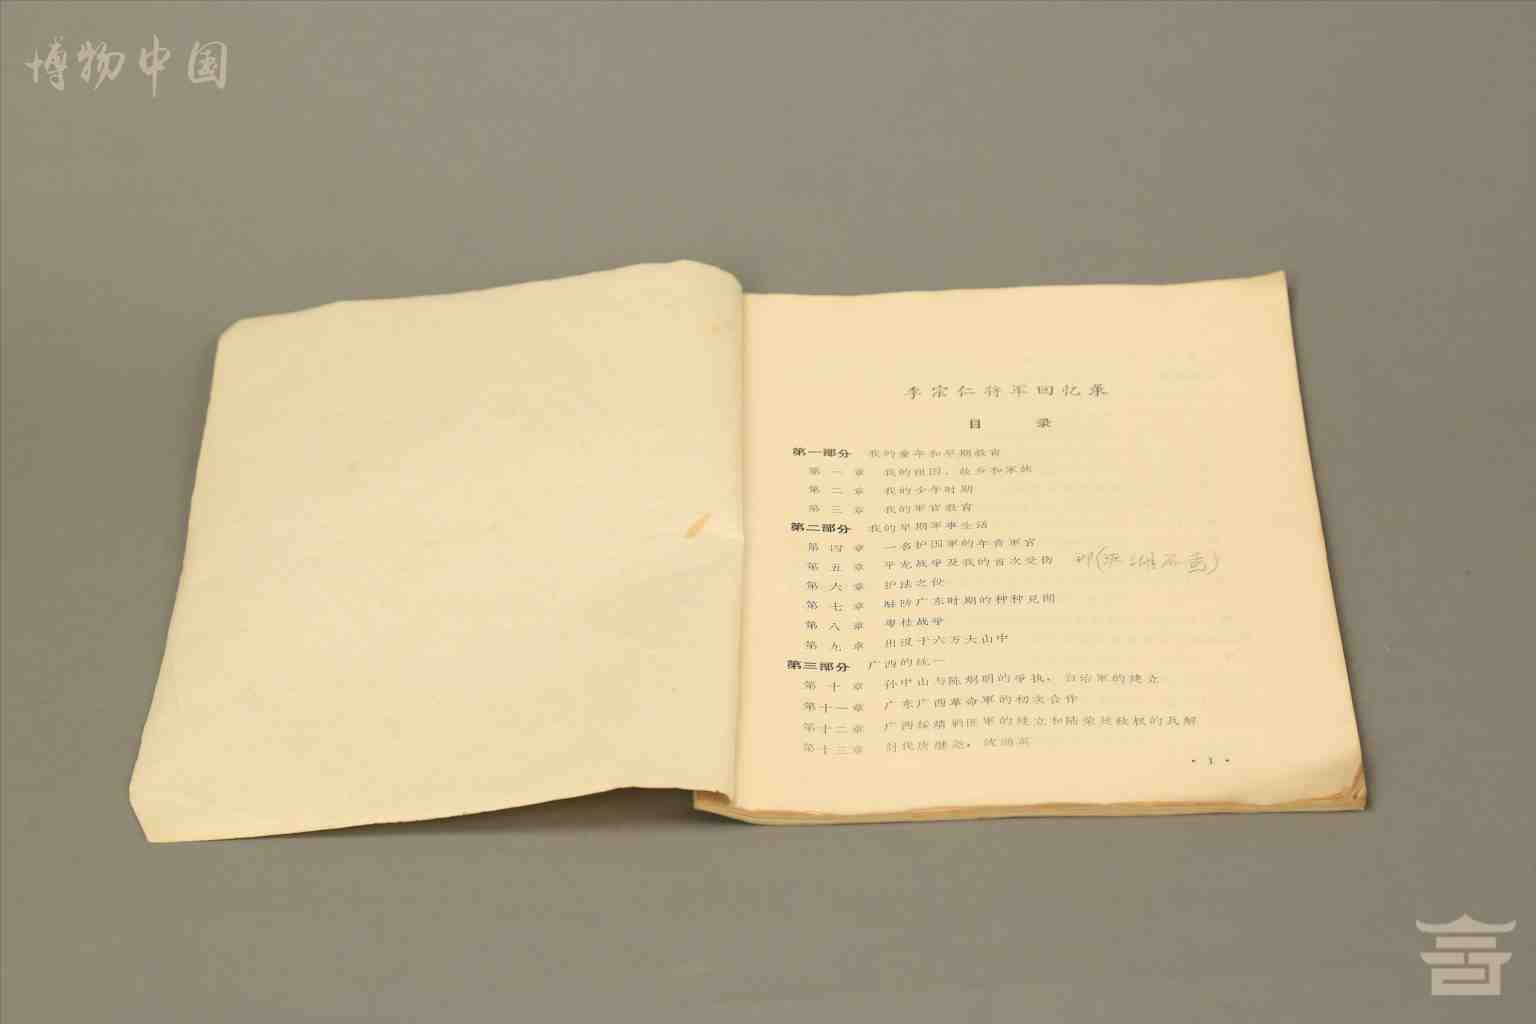 博物中国
李宗仁将军回忆录
目 录
第一部分 我的童年和早期教育
第一章 我的祖国、故乡和家族
第二章 我的少年时期
第三章 我的军官教育
第二部分 我的早期军事生活
第四章 一名护国军的年青军官
第五章 平龙战争及我的首次受伤
第六章 护法之役
第七章 驻防广东时期的种种见闻
第八章 粤桂战争
第九章 出没于六万大山中
第三部分 广西的统一
第十章 孙中山与陈炯明的争执,自治军的建立
第十一章 广东广西革命军的初次合作
第十二章 广西绥靖 军的建立和陆荣廷政权的瓦解
第十三章 讨伐唐继尧,沈鸿英
· 1 ·